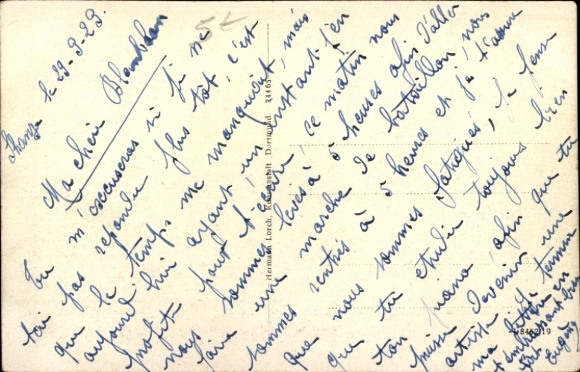 le 29-9-29.
5€
Ma chère
Tu m'excuseras si je ne
t'ai pas répondu plus tôt, c'est
que le temps me manquait, mais
aujourd'hui ayant un instant j'en
profite pour t'écrire, ce matin nous
nous sommes levés à 5 heures afin d'aller
faire une marche de bataillon, nous
sommes rentrés à 5 heures et je t'assure
que nous sommes fatigués, je pense
que tu étudies toujours bien
ton piano, afin que tu
puisse devenir une
artiste, je termine
ma petite
Hermann Lorch, Kunstanstalt Dortmund.